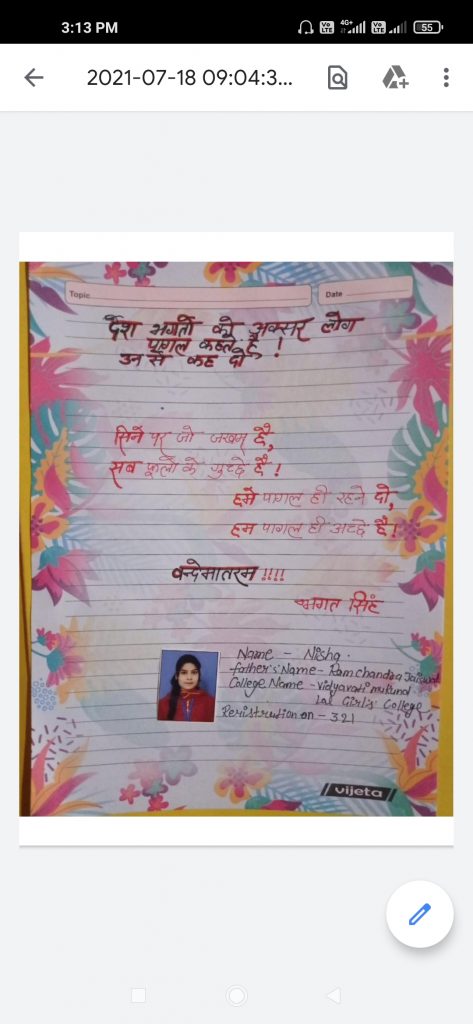 3:13 PM
4G+
Vo LTE
Vo LTE
55
2021-07-18 09:04:3...
Topic
Date
देश भगतों को अक्सर लोग
पागल कहते है !
उन से कह दो
सिने पर जो जखम है,
सब फूलों के गुच्छे है !
हमे पागल ही रहने दो,
हम पागल ही अच्छे है !
वन्देमातरम !!!!
भगत सिंह
Name - Nisha .
father's Name - Ram chandra Jaiswal
College Name - Vidyavati mukund
Lal Girl's College
Reristrution on - 321
vijeta